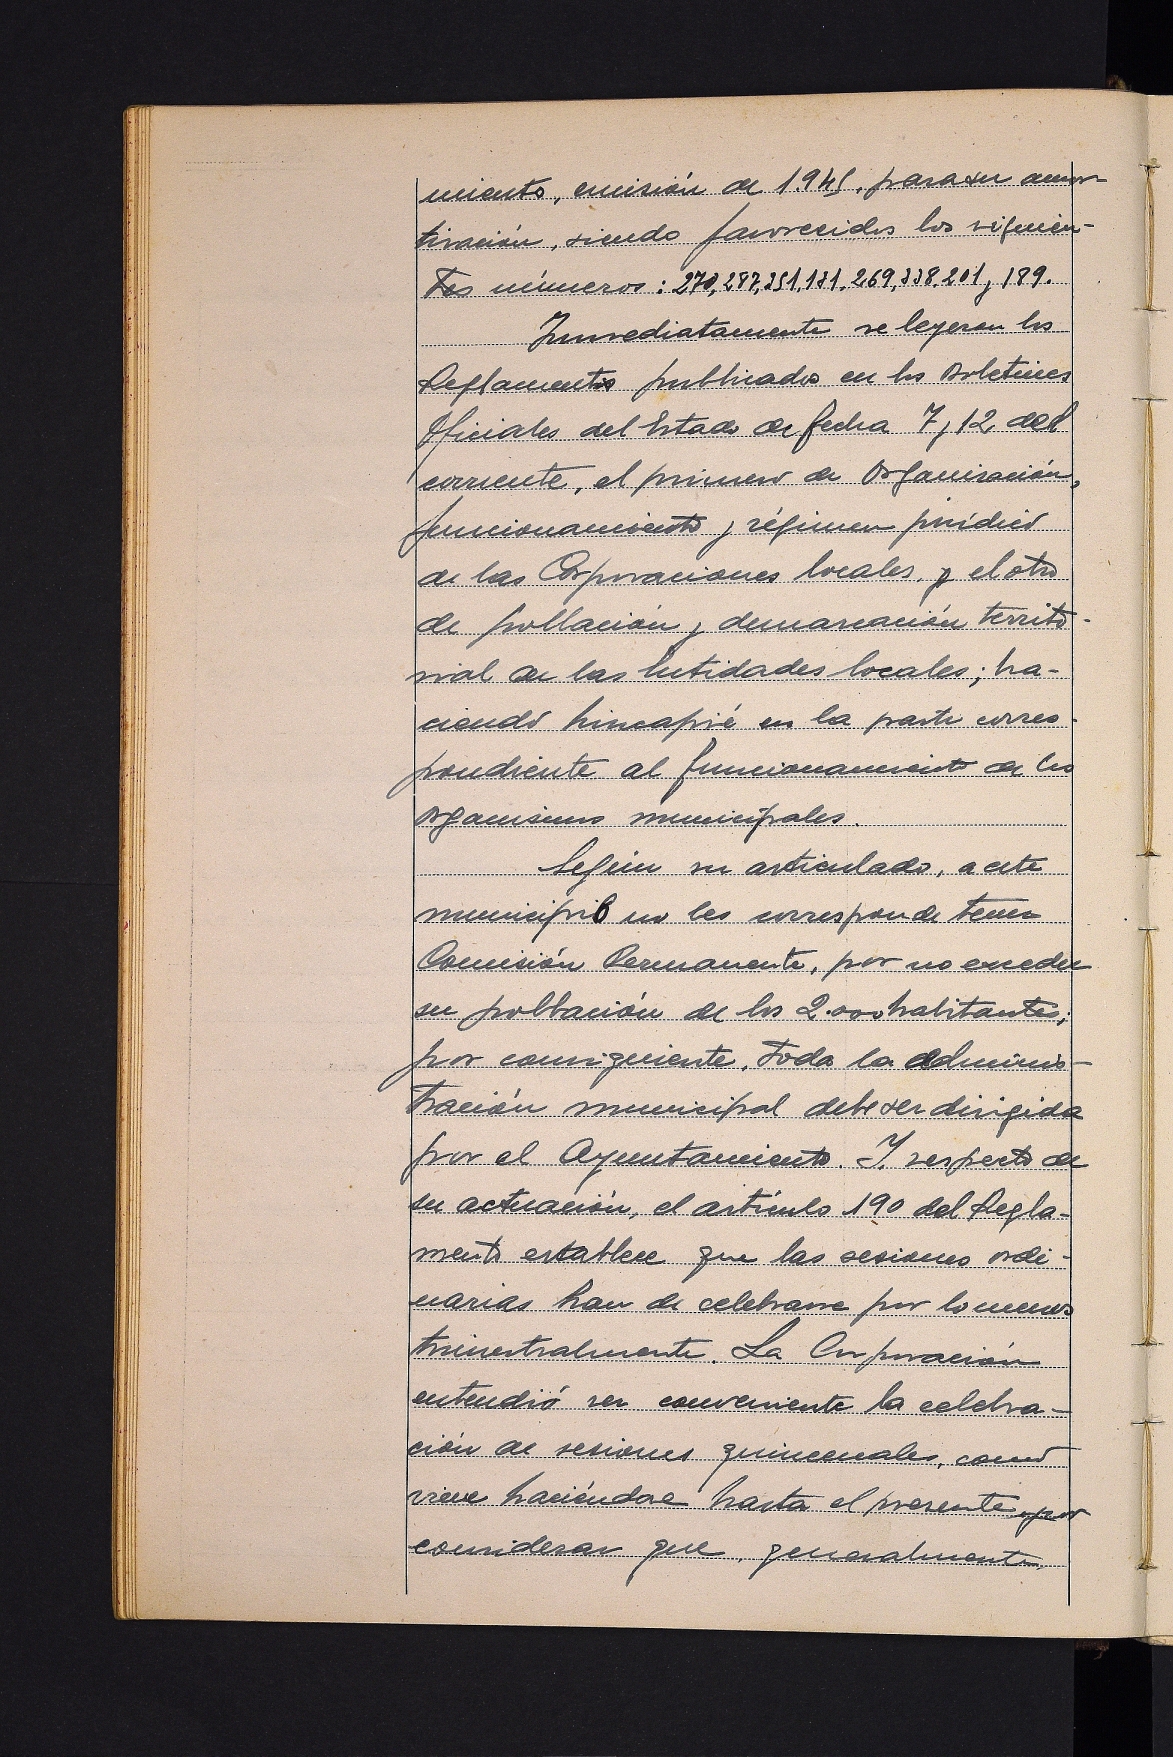 miento, emisión de 1.945, para su amor-
tización, siendo favorecidos los siguien-
tes números: 270, 287, 351, 131, 269, 338, 201 y 189.
Inmediatamente se leyeron los
Reglamentos publicados en los Boletines
Oficiales del Estado de fecha 7 y 12 del
corriente, el primero de Organización,
funcionamiento y régimen jurídico
de las Corporaciones locales, y el otro
de población y demarcación territo-
rial de las Entidades locales; ha-
ciendo hincapié en la parte corres-
pondiente al funcionamiento de los
organismos municipales.
Según su articulado, a este
municipio no les corresponde tener
Comisión Permanente, por no exceder
su población de los 2.000 habitantes;
por consiguiente, toda la adminis-
tración municipal debe ser dirigida
por el Ayuntamiento. Y, respecto de
su actuación, el artículo 190 del Regla-
mento establece que las sesiones ordi-
narias han de celebrarse por lo menos
trimestralmente. La Corporación
entendió ser conveniente la celebra-
ción de sesiones quincenales, como
viene haciéndose hasta el presente, por
considerar que, generalmente,